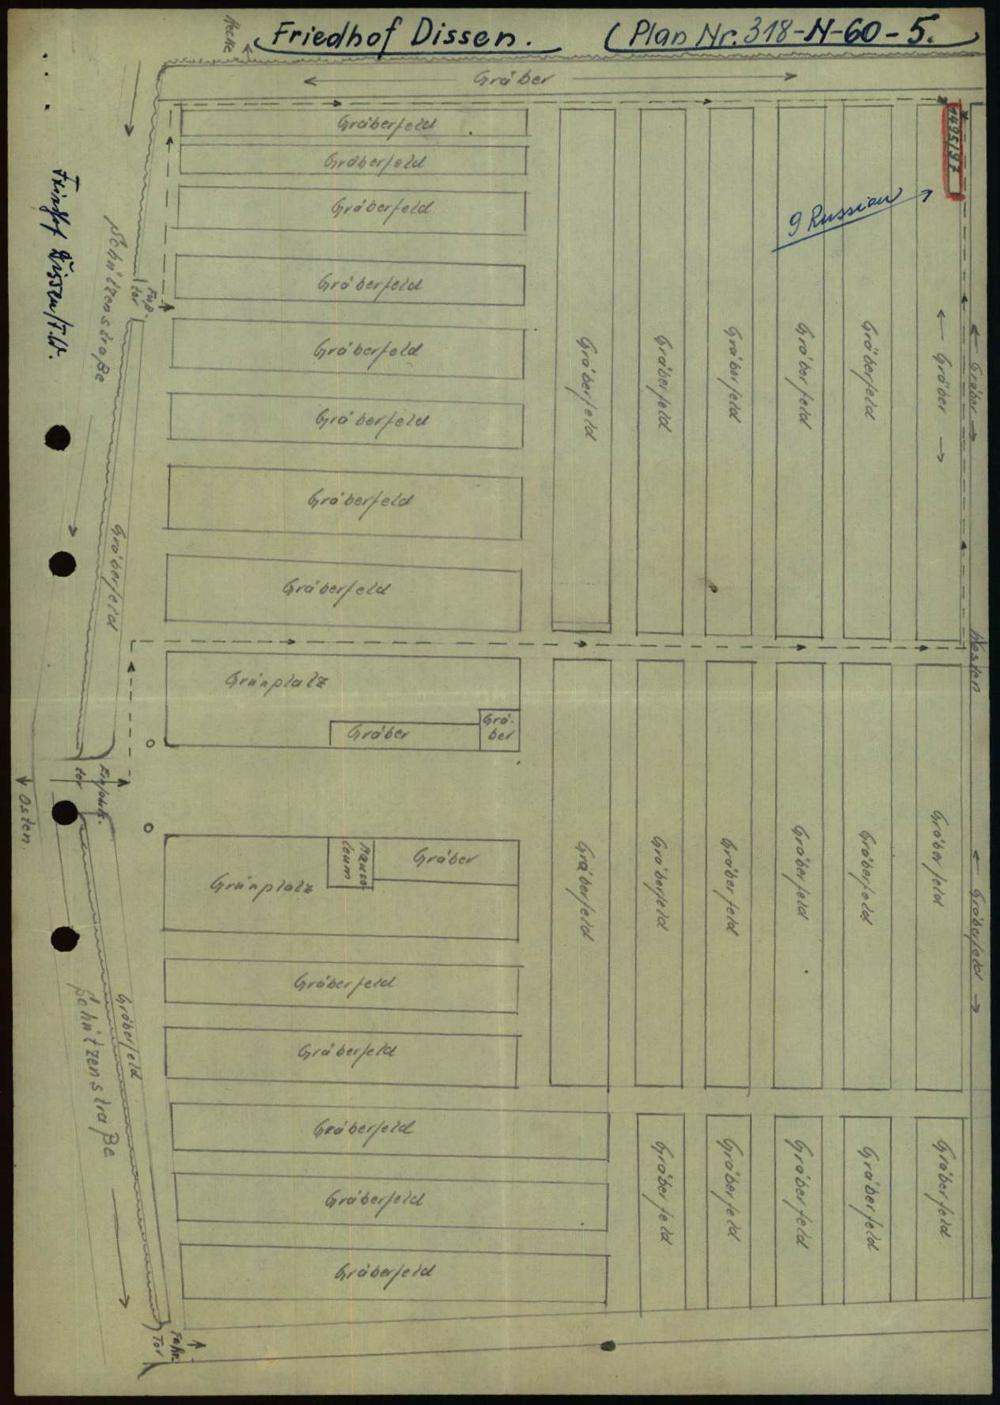 Friedhof Dissen. (Plan Nr. 318-N-60-5.
Hecke
← Gräber →
Gräberfeld
Gräberfeld
Gräberfeld
Gräberfeld
Gräberfeld
Gräberfeld
Gräberfeld
Gräberfeld
9 Russian
Gräberfeld
Gräberfeld
Gräberfeld
Gräberfeld
Gräberfeld
← Gräber →
← Gräber →
Friedhof Dissen/T.W.
Schützenstraße
Fuß-
tor
Gräberfeld
Westen
Grünplatz
Gräber
Grä-
ber
tor
Osten
Grünplatz
Mauso
leum
Gräber
Gräberfeld
Gräberfeld
Gräberfeld
Gräberfeld
Gräberfeld
Gräberfeld
← Gräberfeld →
Gräberfeld
Gräberfeld
Gräberfeld
Schützenstraße
Gräberfeld
Gräberfeld
Gräberfeld
Gräberfeld
Gräberfeld
Gräberfeld
Gräberfeld
Gräberfeld
Gräberfeld
Fahr.
Tor